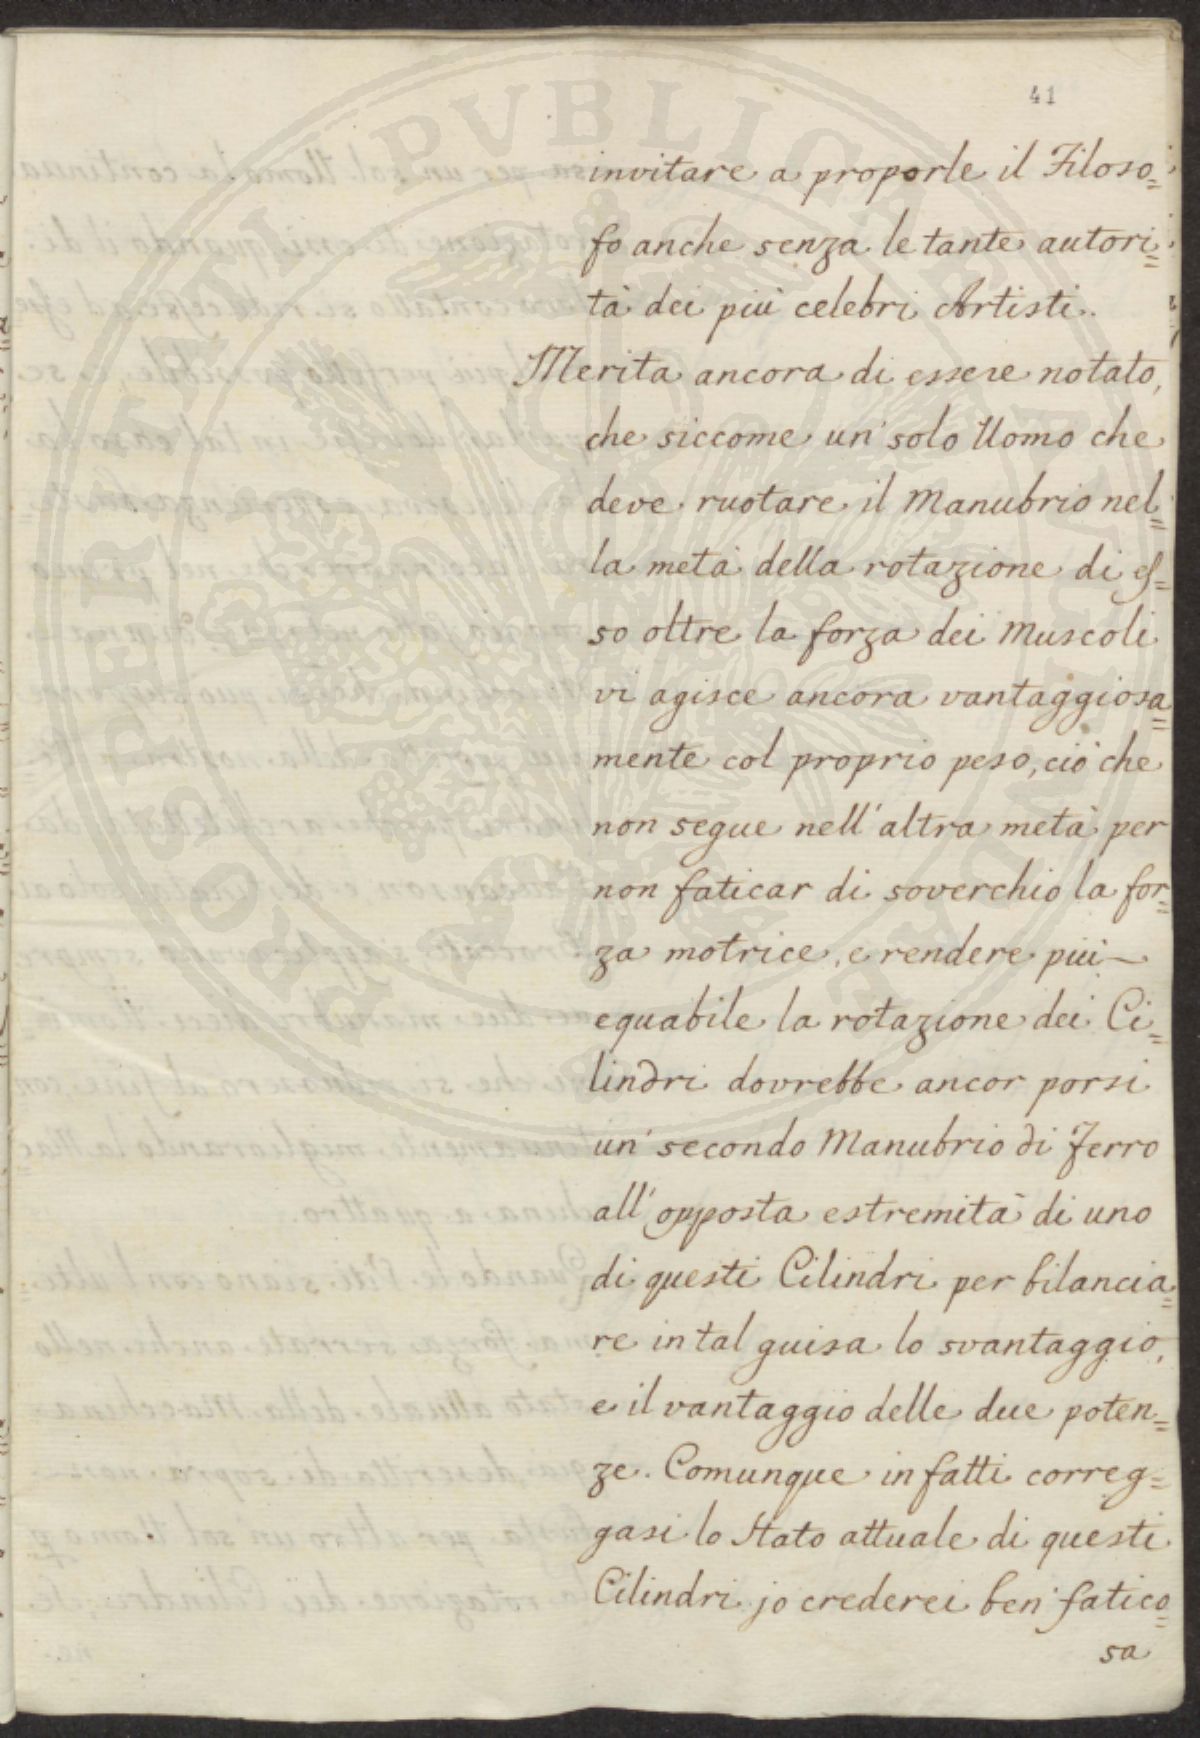 41
invitare a proporle il Filoso=
fo anche senza le tante autori=
tà dei più celebri Artisti.
Merita ancora di essere notato,
che siccome un' solo Uomo che
deve ruotare il Manubrio nel=
la metà della rotazione di es=
so oltre la forza dei Muscoli
vi agisce ancora vantaggiosa=
mente col proprio peso, ciò che
non segue nell'altra metà per
non faticar di soverchio la for=
za motrice, e rendere più
equabile la rotazione dei Ci=
lindri dovrebbe ancor porsi
un' secondo Manubrio di Ferro
all'opposta estremità di uno
di questi Cilindri per bilancia=
re in tal guisa lo svantaggio,
e il vantaggio delle due poten=
ze. Comunque in fatti correg=
gasi lo Stato attuale di questi
Cilindri jo crederei ben' fatico=
sa
PROSPERITATI PVBLICAE